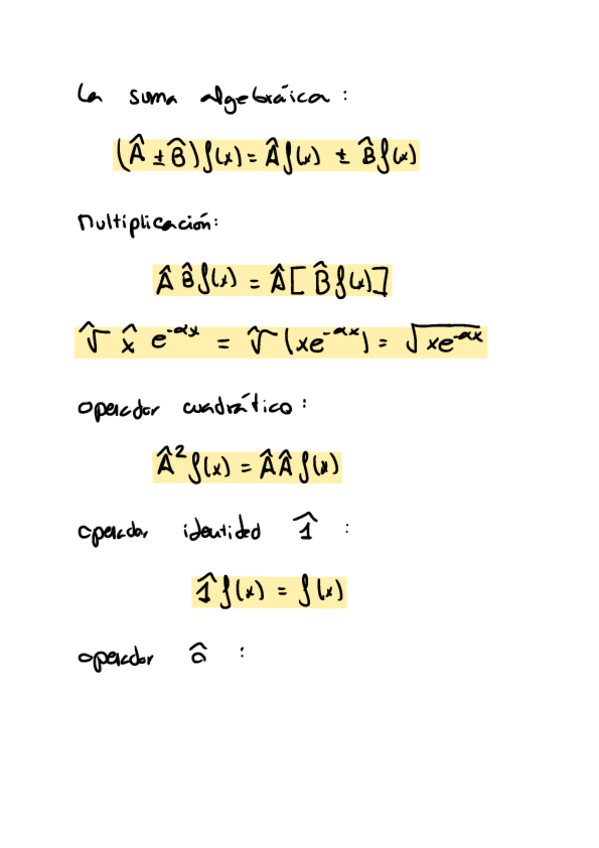 La suma algebráica:
(Â ± B̂) f(x) = Â f(x) ± B̂ f(x)
Multiplicación:
Â B̂ f(x) = Â [ B̂ f(x)]
√̂ x̂ e^-αx = √̂ (xe^-αx) = √xe^-αx
operador cuadrático:
Â² f(x) = Â Â f(x)
operador identidad 1̂ :
1̂ f(x) = f(x)
operador â :